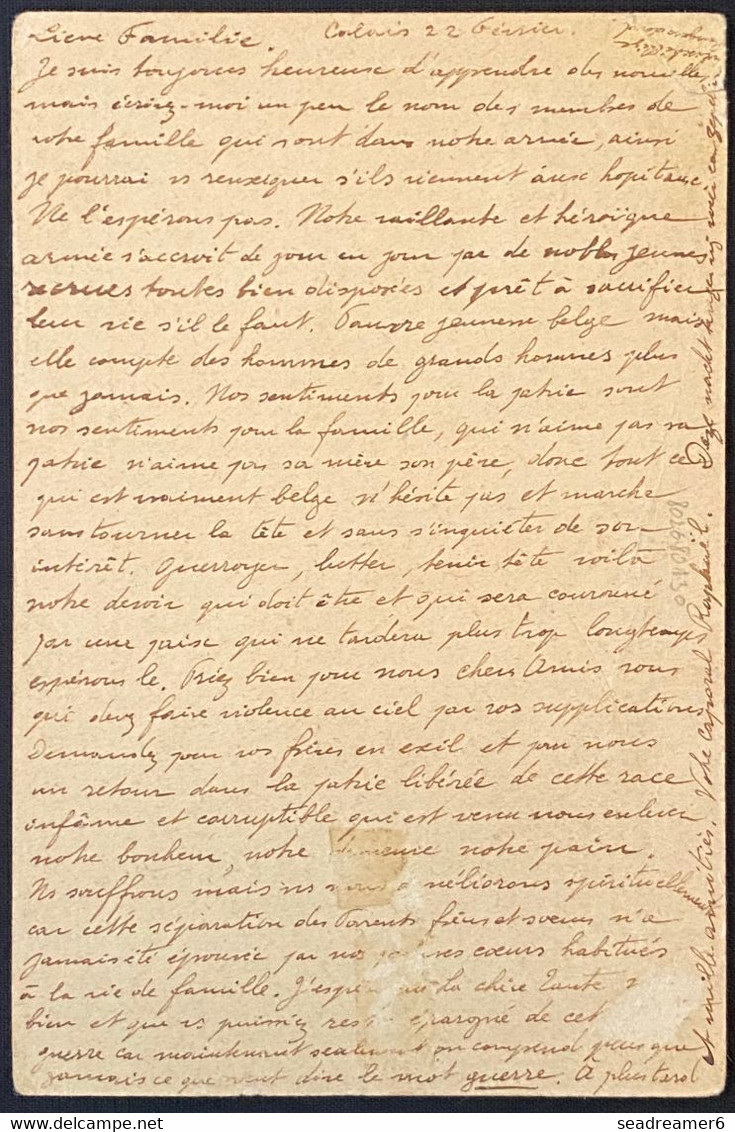 Lieve Familie. Calais 22 Février.
Je suis toujours heureuse d'apprendre des nouvelles
mais écrivez-moi un peu le nom des membres de
votre famille qui sont dans notre armée, ainsi
je pourrai vs renseigner s'ils viennent aux hopitaux.
Ne l'espérons pas. Notre vaillante et héroïque
armée s'accroit de jour en jour par de nobles jeunes
recrues toutes bien disposées et prêt à sacrifier
leur vie s'il le faut. Pauvre jeunesse belge mais
elle compte des hommes de grands hommes plus
que jamais. Nos sentiments pour la patrie sont
nos sentiments pour la famille, qui n'aime pas sa
patrie n'aime pas sa mère son père, donc tout ce
qui est vraiment belge n'hésite pas et marche
sans tourner la tête et sans s'inquiéter de son
intérêt. Guerroyer, lutter, tenir tête voilà
notre devoir qui doit être et qui sera couronné
par une paix qui ne tardera plus trop longtemps
espérons le. Priez bien pour nous chers Amis vous
qui devez faire violence au ciel par vos supplications
Demandez pour vos frères en exil et pour nous
un retour dans la patrie libérée de cette race
infâme et corruptible qui est venu nous enlever
notre bonheur, notre notre pain.
Ns souffrons mais ns nous améliorons spirituellement
car cette séparation des Parents frères et soeurs n'a
jamais été éprouvée par nos coeurs habitués
à la vie de famille. J'espère la chère Tante
bien et que vs puissiez épargné de cet
guerre car maintenant seulement on comprend plus que
jamais ce que veut dire le mot guerre. A plus tard
et mille amitiés. Votre caporal Raphaël. Deze nacht
8026801130
seadreamer6